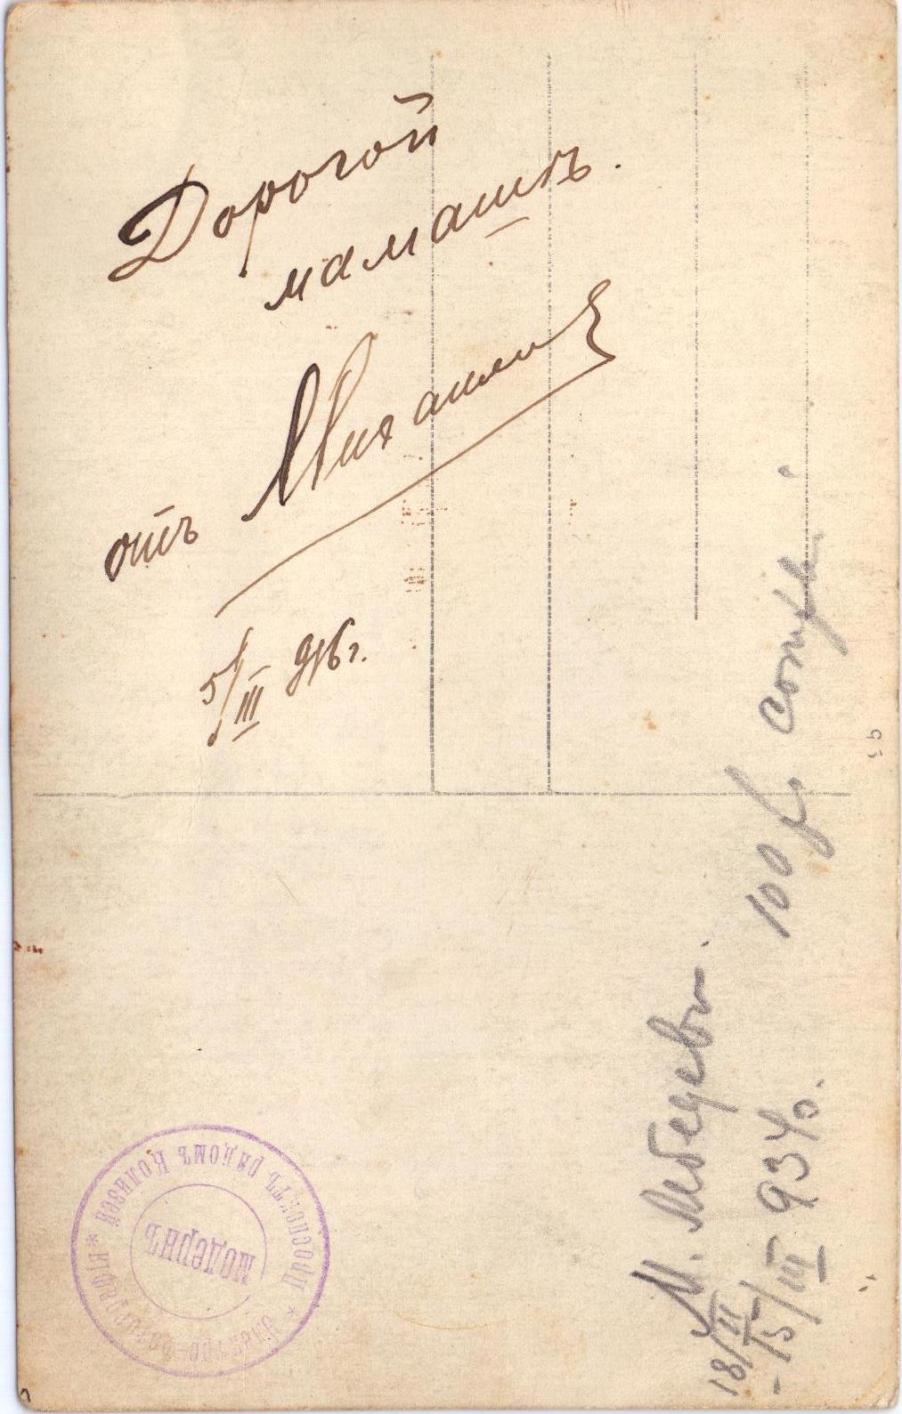 Дорогой
мамашѣ.
отъ Михаила
5/III 916 г.
М. Лебедевъ.
18/II
-15/III 934 г.
100
Электро-Фотографія * Проспектъ рядомъ *
Модернъ